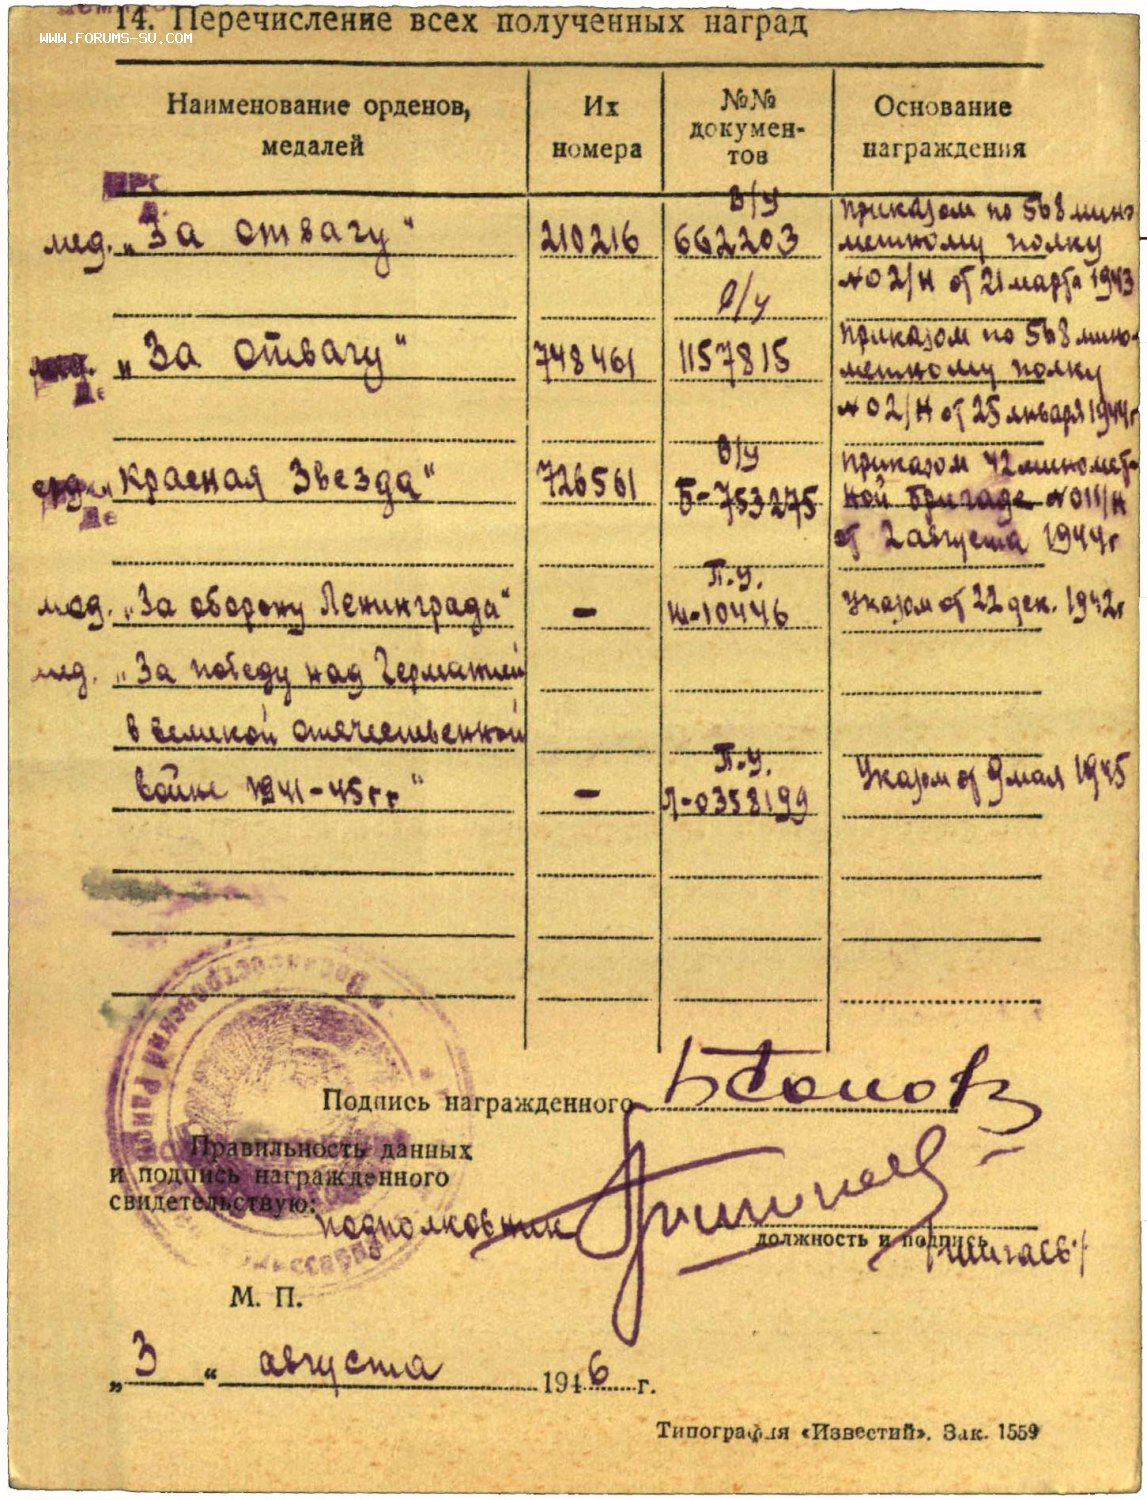 14. Перечисление всех полученных наград
www.forums-su.com
Наименование орденов, медалей
Их номера
№№ докумен-тов
Основание награждения
мед. „За отвагу“
210216
в/у
662203
приказом по 568 мино-
метному полку
№02/н от 21 марта 1943
„За отвагу“
748461
в/у
1157815
приказом по 568 мино-
метному полку
№02/н от 25 января 1944г
Красная Звезда“
726561
в/у
Б-753275
приказом 42 миномет-
ной бригаде №011/н
от 2 августа 1944г
мед. „За оборону Ленинграда“
-
П.У.
Ш-10446
Указом от 22 дек. 1942г
мед. „За победу над Германией
в великой отечественной
войне 1941-45гг“
-
П.У.
Л-0358199
Указом от 9 мая 1945
Подпись награжденного
Правильность данных
и подпись награжденного
свидетельствую:
подполковник
должность и подпись
М. П.
„3“ августа 1946 г.
Типография «Известий». Зак. 1559